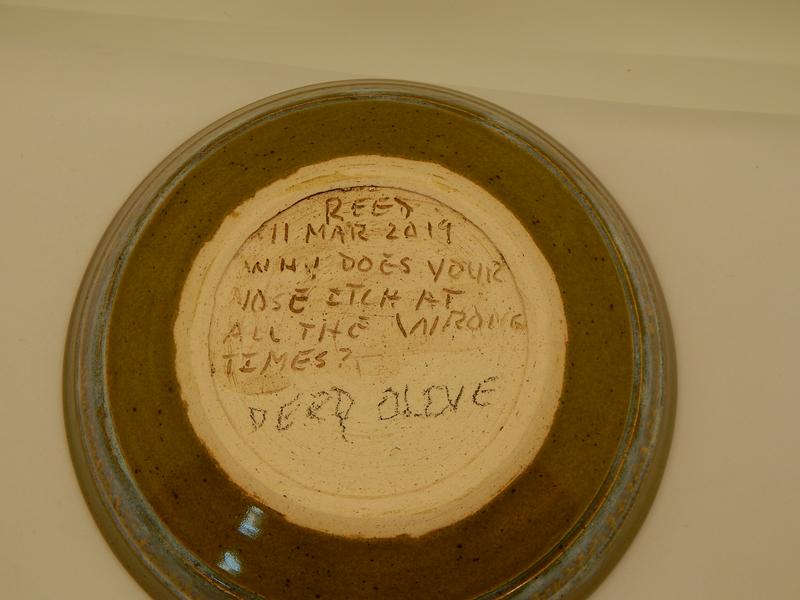 REED
11 MAR 2019
WHY DOES YOUR
NOSE ITCH AT
ALL THE WRONG
TIMES?
OLIVE